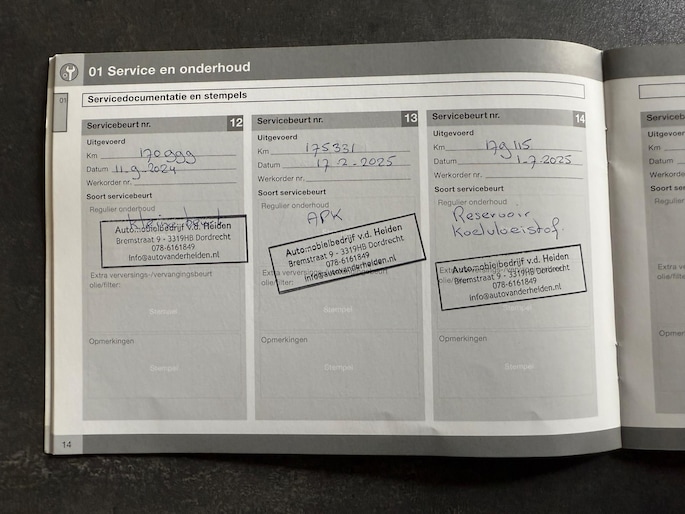 01 Service en onderhoud
01
Servicedocumentatie en stempels
Servicebeurt nr. 12
Uitgevoerd
Km 170999
Datum 11-9-2024
Werkorder nr.
Soort servicebeurt
Regulier onderhoud
Kleine beurt
Automobielbedrijf v.d. Heiden
Bremstraat 9 - 3319HB Dordrecht
078-6161849
info@autovanderheiden.nl
Extra verversings-/vervangingsbeurt
olie/filter:
Stempel
Opmerkingen
Stempel
Servicebeurt nr. 13
Uitgevoerd
Km 175331
Datum 17-2-2025
Werkorder nr.
Soort servicebeurt
Regulier onderhoud
APK
Automobielbedrijf v.d. Heiden
Bremstraat 9 - 3319HB Dordrecht
078-6161849
info@autovanderheiden.nl
olie/filter:
Stempel
Opmerkingen
Stempel
Servicebeurt nr. 14
Uitgevoerd
Km 179115
Datum 1-7-2025
Werkorder nr.
Soort servicebeurt
Regulier onderhoud
Reservoir
Koelvloeistof
Automobielbedrijf v.d. Heiden
Bremstraat 9 - 3319HB Dordrecht
078-6161849
info@autovanderheiden.nl
olie/filter:
Stempel
Opmerkingen
Stempel
14
Uitgevoerd
Km
Datum
Werkorder
Soort ser
Regulier
olie/filte